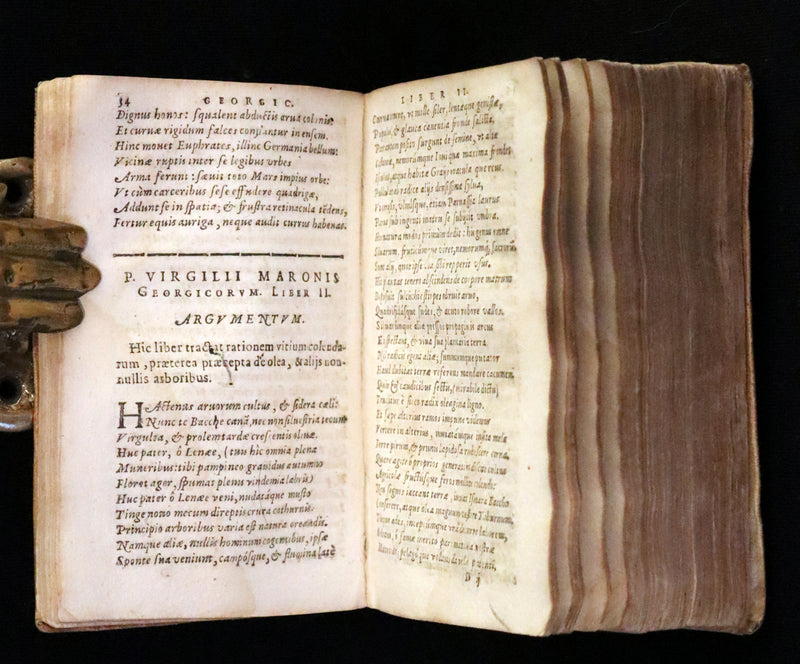 34 GEORGIC.
Dignus honos: squalent abductis arua colonis
Et curuæ rigidum falces conflantur in ensem.
Hinc mouet Euphrates, illinc Germania bellum:
Vicinæ ruptis inter se legibus vrbes
Arma ferunt: sæuit toto Mars impius orbe:
Vt cùm carceribus sese effudere quadrigæ,
Addunt se in spatia; & frustra retinacula tēdens,
Fertur equis auriga, neque audit currus habenas.
P. VIRGILII MARONIS
GEORGICORVM. LIBER II.
ARGVMENTVM.
Hic liber tractat rationem vitium colenda-
rum, præterea præcepta de olea, & alijs non-
nullis asboribus.
HActenus aruorum cultus, & sidera cæli:
Nunc te Bacche canā, nec non siluestria tecum
Virgulta, & prolem tardæ crescentis oliuæ.
Huc pater, ô Lenæe, (tuis hic omnia plena
Muneribus: tibi pampineo grauidus autumno
Floret ager, spumat plenis vindemia labris)
Huc pater ô Lenæe veni, nudatáque musto
Tinge nouo mecum direptis crura cothurnis.
Principio arboribus varia est natura creandis.
Namque aliæ, nullis hominum cogentibus, ipsæ
Sponte sua veniunt, campósque, & flumina latè
LIBER II.
Curua tenent, vt molle siler, lentæque genistæ,
Populus, & glauca canentia fronde salicta.
Pars autem posito surgunt de semine, vt altæ
Castaneæ, nemorúmque Ioui quæ maxima frondet
habitæ Graijs oracula quercus.
Pullulat ab radice alijs densissima sylua,
Vt cerasis, vlmisque, etiam Parnassia laurus
Parua sub ingenti matris se subijcit vmbra.
Hos natura modos primùm dedit: his genus omne
Siluarum, fruticúmque viret, nemorúmque sacrorū.
Sunt alij, quos ipse via sibi repperit vsus.
Hic plantas tenero abscindens de corpore matrum
Deposuit sulcis: hic stirpes obruit aruo,
Quadrifidásque sudes, & acuto robore valles.
Siluarúmque aliæ pressos propaginis arcus
Expectant, & viua sua plantaria terra.
Nil radicis egent aliæ; summúmque putator
Haud dubitat terræ referens mandare cacumen.
Quin & caudicibus sectis, (mirabile dictu)
Truditur è sicco radix oleagina ligno.
Et sæpe alterius ramos impune videmus
Vertere in alterius, mutatámque insita mala
Ferre pirum, & prunis lapidosa rubescere corna.
Quare agite ô proprios generatim discite cultus
Agricolæ fructúsque feros mollite colendo:
Neu segnes iaceant terræ, iuuat Ismara Baccho
Conserere, atque olea magnum vestire Taburnum.
D